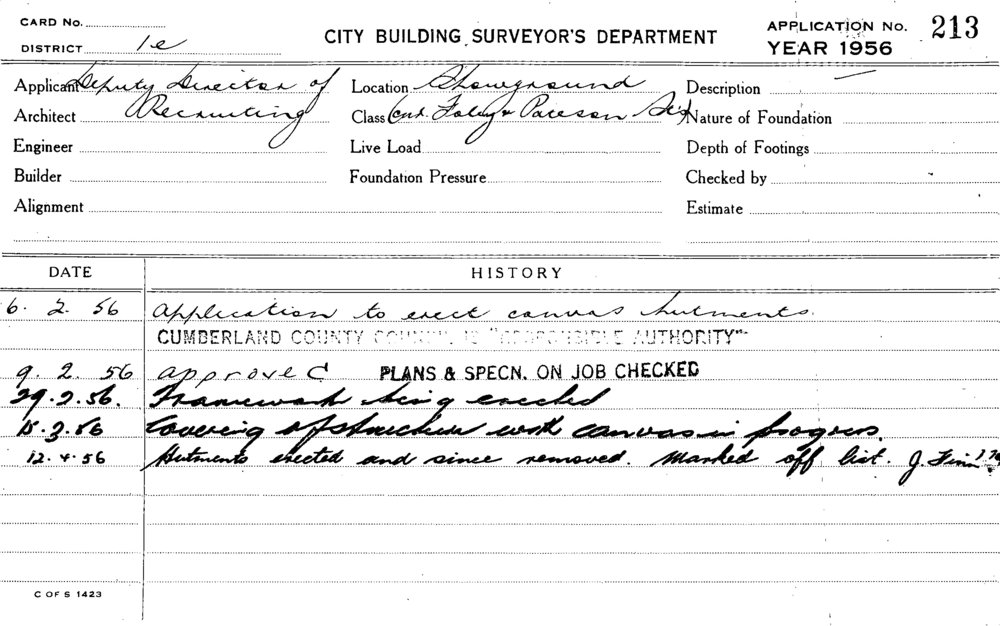 CARD No.
DISTRICT 1e
CITY BUILDING SURVEYOR'S DEPARTMENT
APPLICATION No. 213
YEAR 1956
Applicant Deputy Director of Recruiting
Location Showground
Description —
Architect
Class Cnr. Foley & Paterson Sts
Nature of Foundation
Engineer
Live Load
Depth of Footings
Builder
Foundation Pressure
Checked by
Alignment
Estimate
DATE HISTORY
6. 2. 56 Application to erect canvas hutments.
CUMBERLAND COUNTY COUNCIL IS "RESPONSIBLE AUTHORITY"
9. 2. 56 approved PLANS & SPECN. ON JOB CHECKED
29.2.56. Framework being erected
15.3.56 Covering of structure with canvas in progress.
12.4.56 Hutments erected and since removed. Marked off list. J. Finn
C OF S 1423